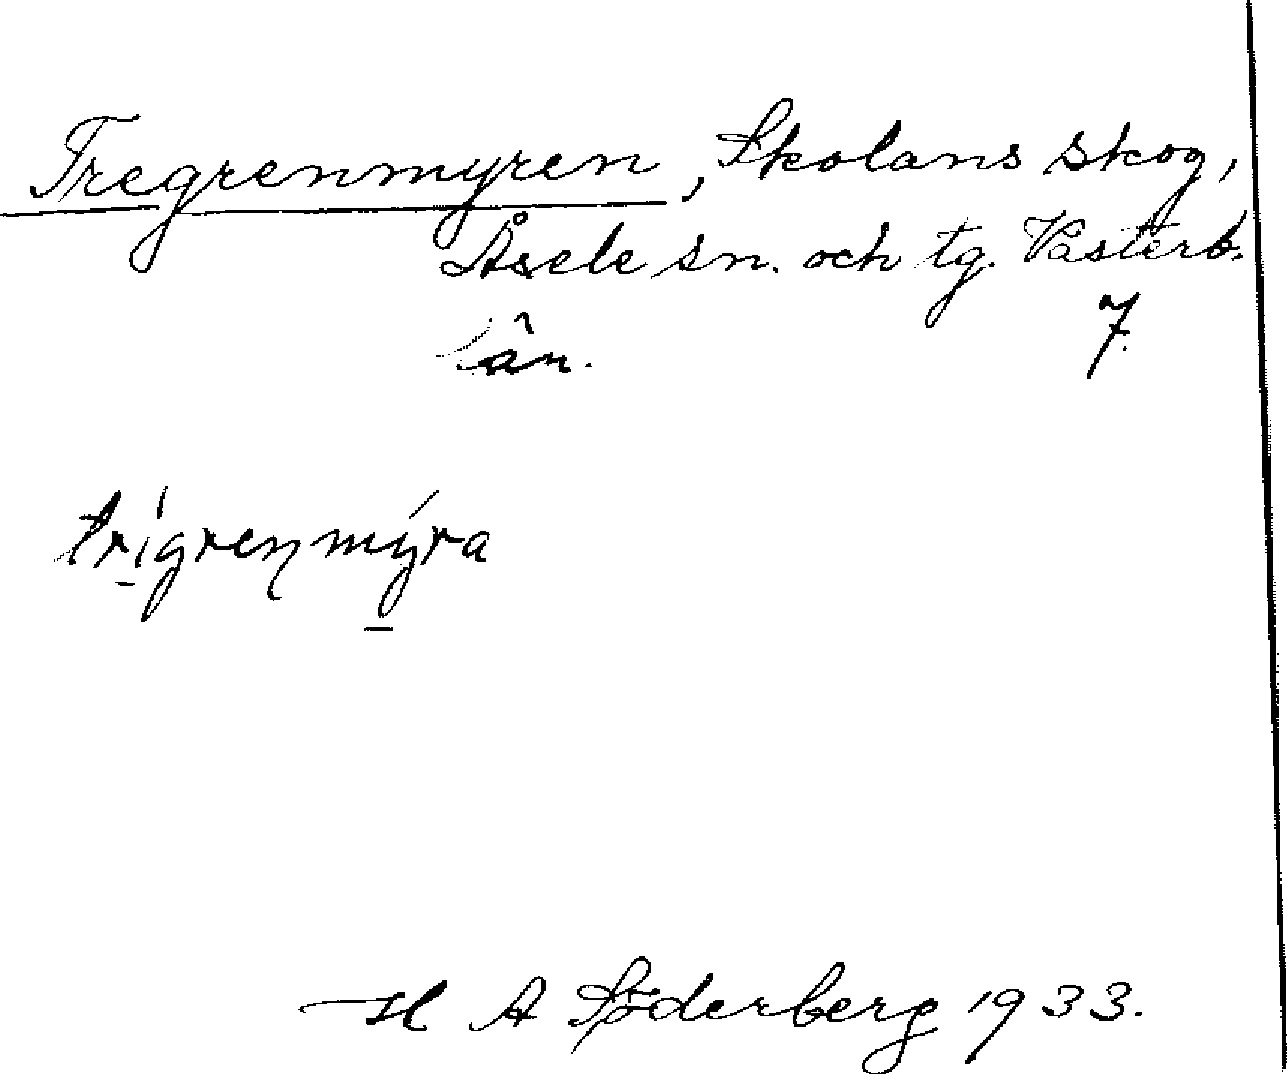 Tregrenmyren, Skolans skog,
Åsele sn. och tg. Västerb.
län. 7.
trígrenmýra
H A Söderberg 1933.